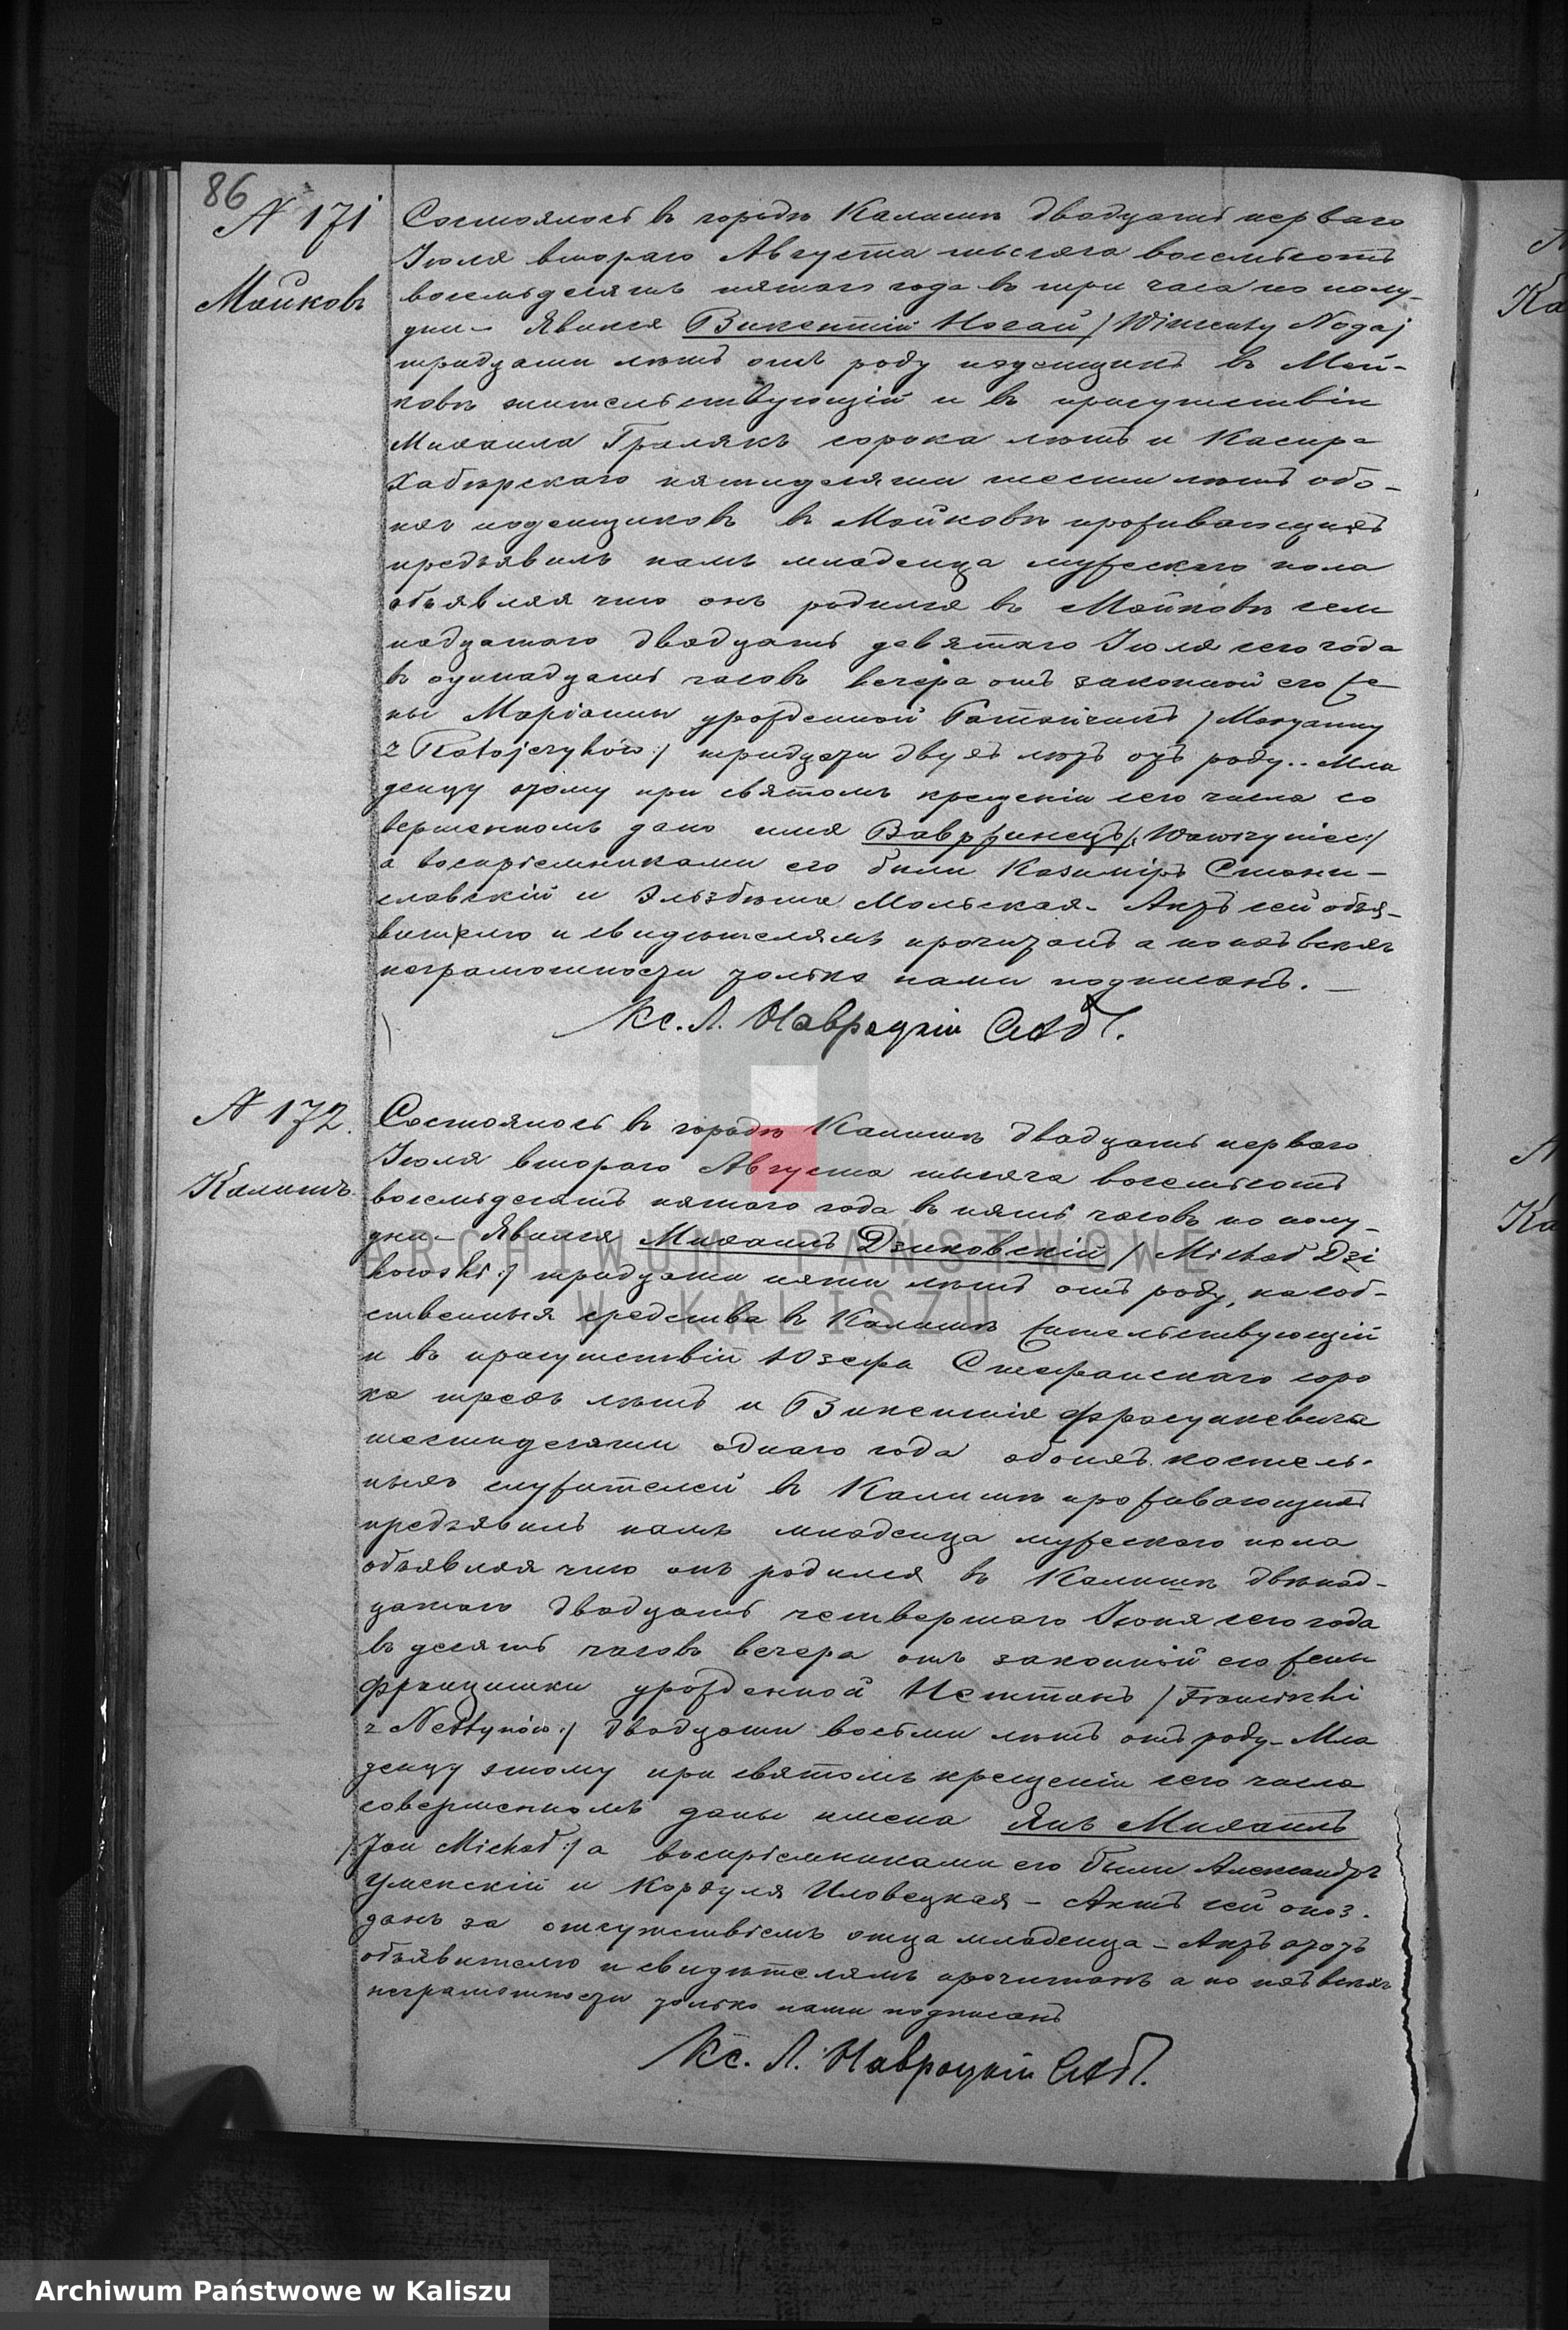 86
N 171
Майковъ
Состоялось въ городѣ Калишѣ двадцать перваго
Іюля втораго Августа тысяча восемьсотъ
восемьдесятъ пятаго года въ три часа по полу-
дни – Явился Викентій Ногай /Wincenty Nogaj
тридцати лѣтъ отъ роду поденщикъ въ Май-
ковѣ жительствующій и въ присутствіи
Михаила Гралякъ сорока лѣтъ и Каспра
Хабѣрскаго пятидесяти шести лѣтъ обо-
ихъ поденщиковъ въ Майковѣ проживающихъ
предъявилъ намъ младенца мужескаго пола
объявляя что онъ родился въ Майковѣ сем
надцатаго двадцать девятаго Іюля сего года
въ одинадцать часовъ вечера отъ законной его же-
ны Маріанны урожденной Ратайчикъ /Maryanny
z Ratajczyków:/ тридцати двухъ лѣтъ отъ роду.. Мла
денцу этому при святомъ крещеніи сего числа со
вершенномъ дано имя Вавржинецъ /:Wawrzyniec:/
а воспріемниками его были Казиміръ Стани-
славскій и Эльзбѣта Мольская – Актъ сей объя-
вителю и свидѣтелямъ прочитанъ а по ихъ всѣхъ
неграмотности только нами подписанъ. –
Кс. Л. Навроцкій САд?.
N 172.
Калишъ.
Состоялось въ городѣ Калишѣ двадцать перваго
Іюля втораго Августа тысяча восемьсотъ
восемьдесятъ пятаго года въ пять часовъ по полу-
дни – Явился Михаилъ Дзиковскій /Michał Dzi
kowski:/ тридцати пяти лѣтъ отъ роду, на соб-
ственныя средства въ Калишѣ жительствующій
и въ присутствіи Юзефа Стефанскаго соро
ка трехъ лѣтъ и Викентія Фрасункевича
шестидесяти однаго года обоихъ костель-
ныхъ служителей въ Калишѣ проживающихъ
предъявилъ намъ младенца мужескаго пола
объявляя что онъ родился въ Калишѣ двѣнад-
цатаго двадцать четвертаго Іюня сего года
въ десять часовъ вечера отъ законной его жены
Францишки урожденной Неттынъ /Franciszki
z Nettynów:/ двадцати восьми лѣтъ отъ роду – Мла
денцу этому при святомъ крещеніи сего числа
совершенномъ даны имена Янъ Михаилъ
/:Jan Michał:/ а воспріемниками его были Александръ
Уменскій и Кордуля Иловецкая – Актъ сей опоз.
данъ за отсутствіемъ отца младенца – Актъ этотъ
объявителю и свидѣтелямъ прочитанъ а по ихъ всѣхъ
неграмотности только нами подписанъ
Кс. Л. Навроцкій
ARCHIWUM PAŃSTWOWE
W KALISZU
Archiwum Państwowe w Kaliszu